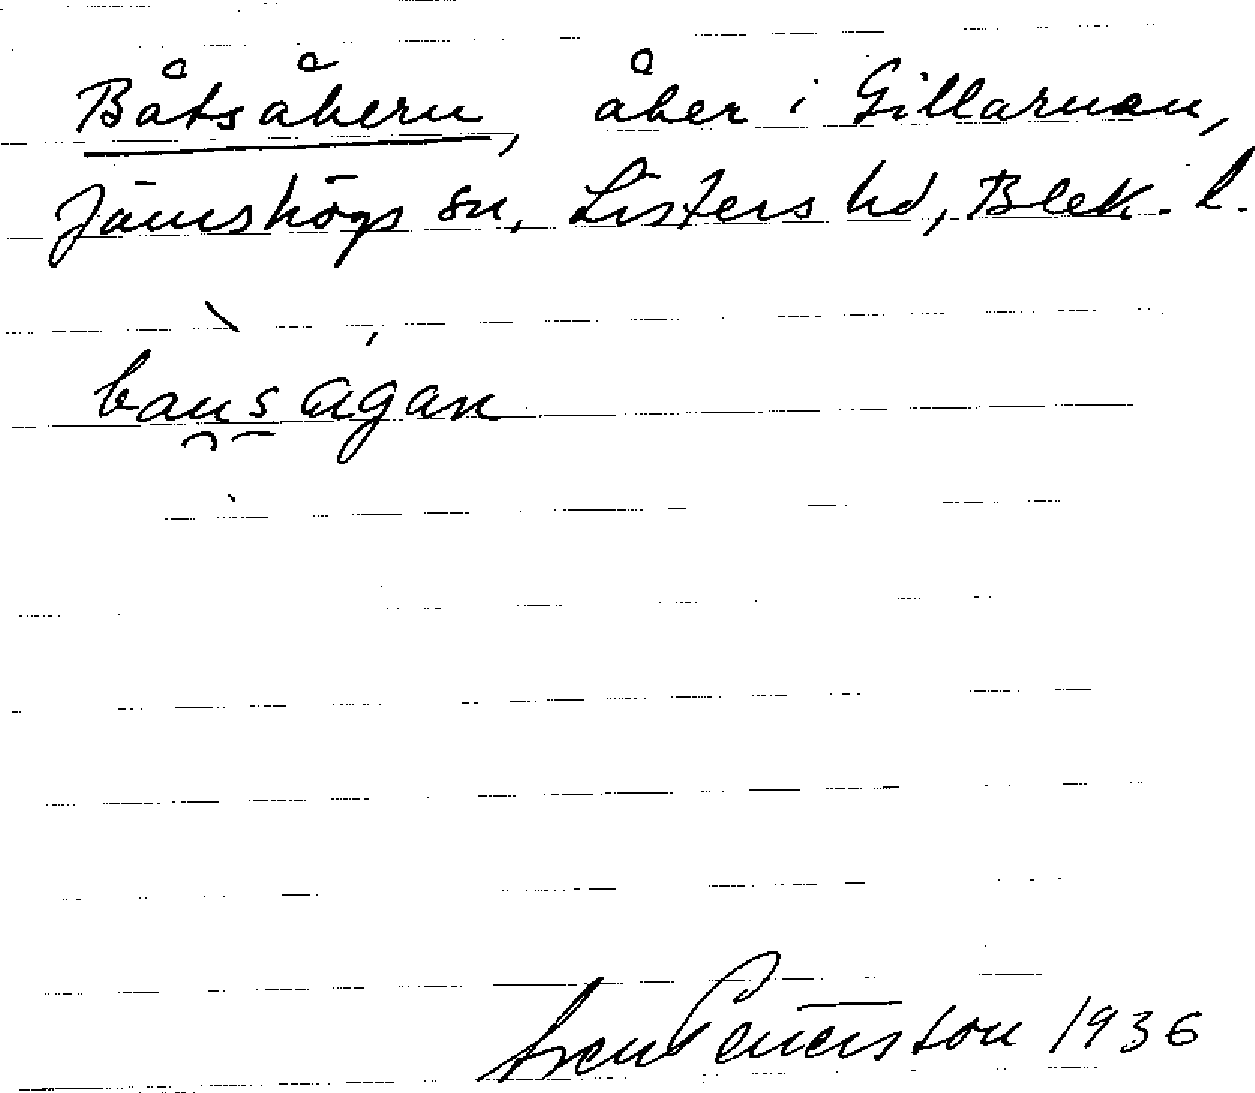 Båtsåkern, åker i Gillaruan,
Jämshögs sn, Listers hd, Blek. l.
bausågan
1936